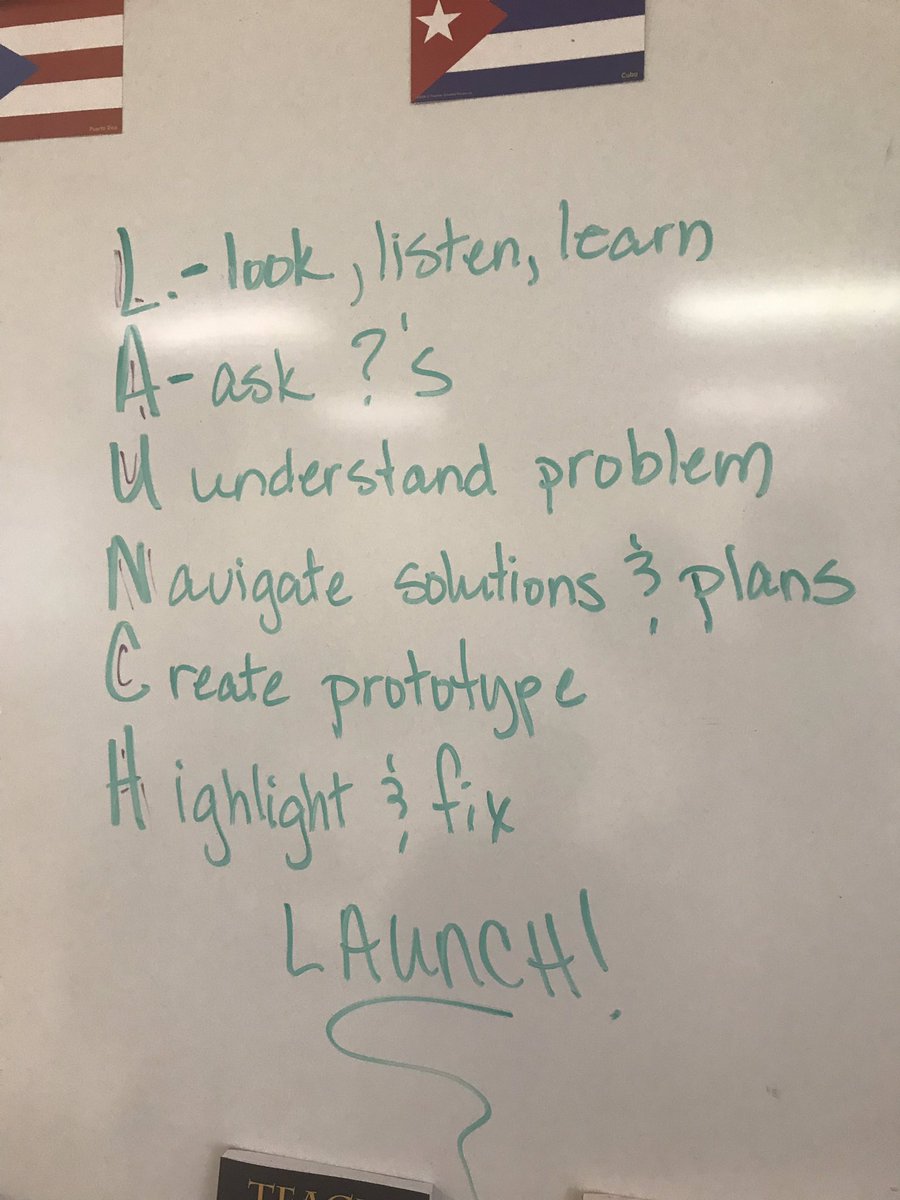 Puerto Rico
Cuba
L.- look, listen, learn
A- ask ?'s
U understand problem
Navigate solutions & plans
Create prototype
Highlight & fix
LAUNCH!